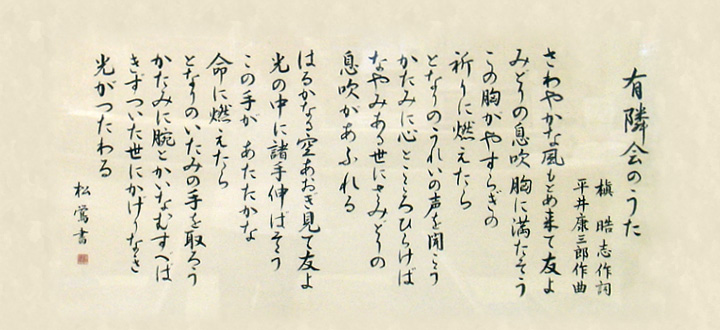 有隣会のうた
槇 晧志作詞
平井康三郎作曲
さわやかな風もとめ来て友よ
みどりの息吹 胸に満たそう
この胸がやすらぎの
祈りに燃えたら
となりのうれいの声を聞こう
かたみに心とこころひらけば
なやみある世にさみどりの
息吹があふれる
はるかなる空あおぎ見て友よ
光の中に諸手伸ばそう
この手が あたたかな
命に燃えたら
となりのいたみの手を取ろう
かたみに腕とかいなむすべば
きずついた世にかげりなき
光がつたわる
松鶯書